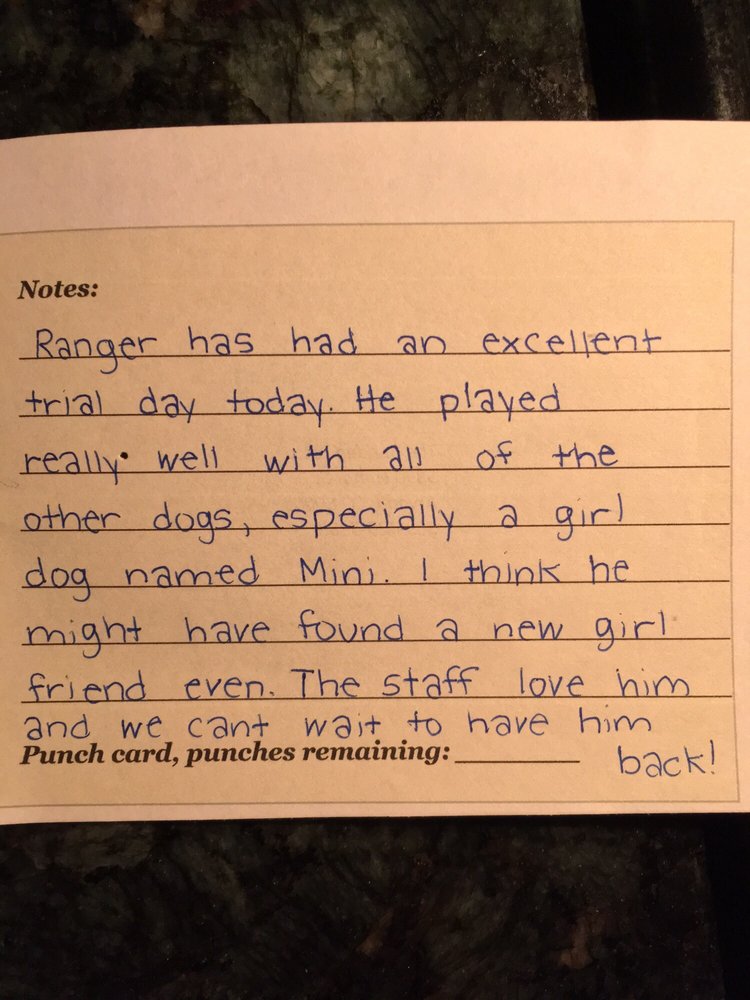 Notes:
Ranger has had an excellent
trial day today. He played
really well with all of the
other dogs, especially a girl
dog named Mini. I think he
might have found a new girl
friend even. The staff love him
and we cant wait to have him
Punch card, punches remaining: ________ back!